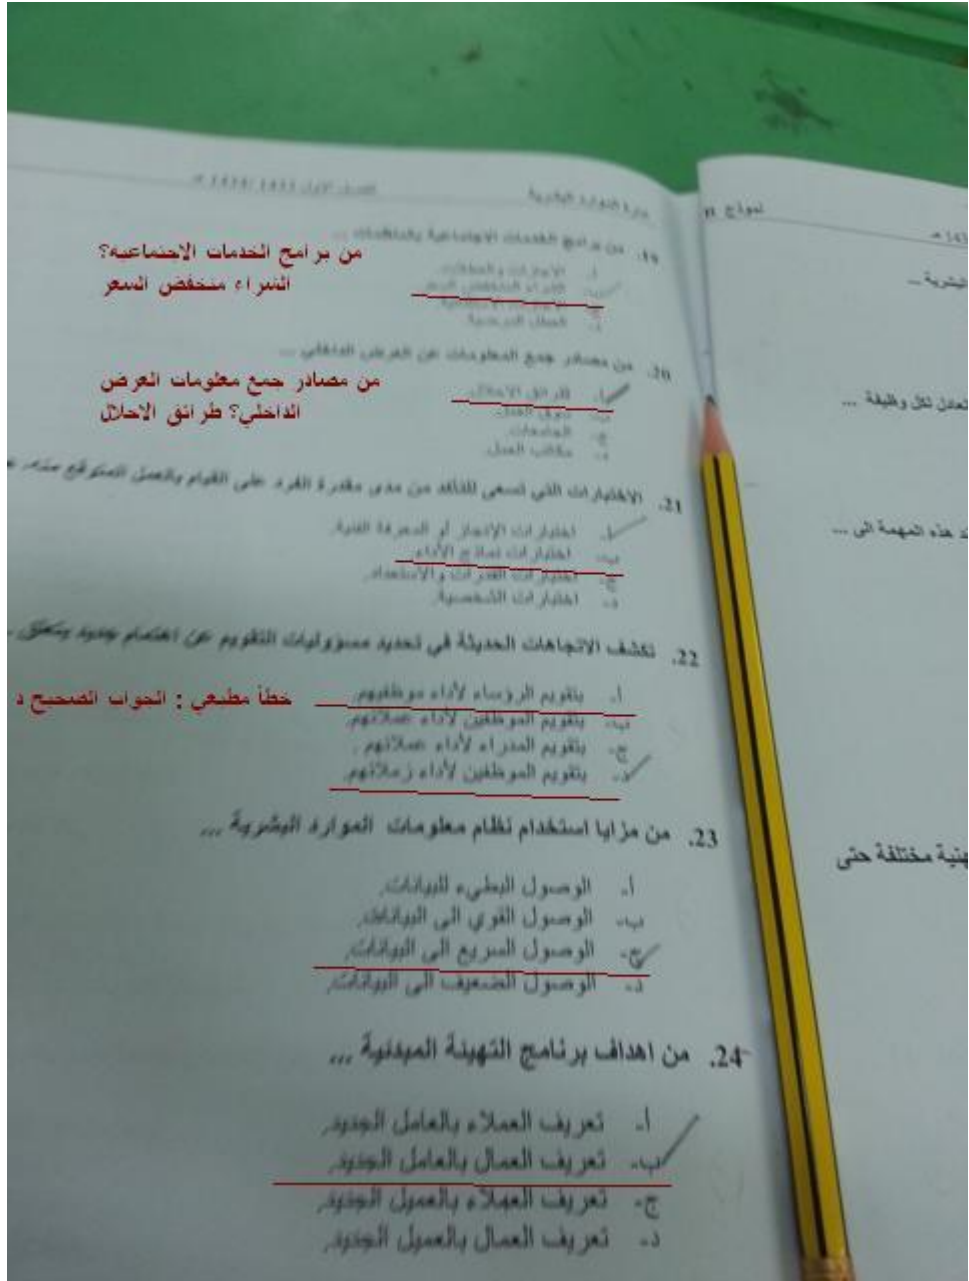 إدارة الموارد البشرية
الفصل الأول 1433/1434 هـ
19. من برامج الخدمات الاجتماعية بالمنظمات ...
من برامج الخدمات الاجتماعيه؟
الشراء منخفض السعر
أ. الاجازات والعطلات.
ب. الشراء المنخفض السعر
ج.
د. العطل المرضية.
20. من مصادر جمع المعلومات عن العرض الداخلي ...
من مصادر جمع معلومات العرض
الداخلي؟ طرائق الاحلال
أ. طرائق الاحلال.
ب. سوق العمل.
ج. الجامعات.
د. مكاتب العمل.
21. الاختبارات التي تسعى للتأكد من مدى مقدرة الفرد على القيام بالعمل المتوقع منه،
أ. اختبارات الإنجاز أو المعرفة الفنية.
ب. اختبارات نماذج الأداء.
ج. اختبارات القدرات والاستعداد.
د. اختبارات الشخصية.
22. تكشف الاتجاهات الحديثة في تحديد مسؤوليات التقويم عن اهتمام جديد يتعلق
أ. بتقويم الرؤساء لأداء موظفيهم.
خطأ مطبعي : الجواب الصحيح د
ب. بتقويم الموظفين لأداء عملائهم.
ج- بتقويم المدراء لأداء عملائهم.
د. بتقويم الموظفين لأداء زملائهم.
23. من مزايا استخدام نظام معلومات الموارد البشرية ...
أ. الوصول البطيء للبيانات.
ب- الوصول القوي الى البيانات.
ج- الوصول السريع الى البيانات.
د. الوصول الضعيف الى البيانات.
24. من اهداف برنامج التهيئة المبدئية ...
أ. تعريف العملاء بالعامل الجديد.
ب- تعريف العمال بالعامل الجديد.
ج- تعريف العملاء بالعميل الجديد.
د. تعريف العمال بالعميل الجديد.
نموذج
البشرية ...
لكل وظيفة ...
هذه المهمة الى ...
مختلفة حتى